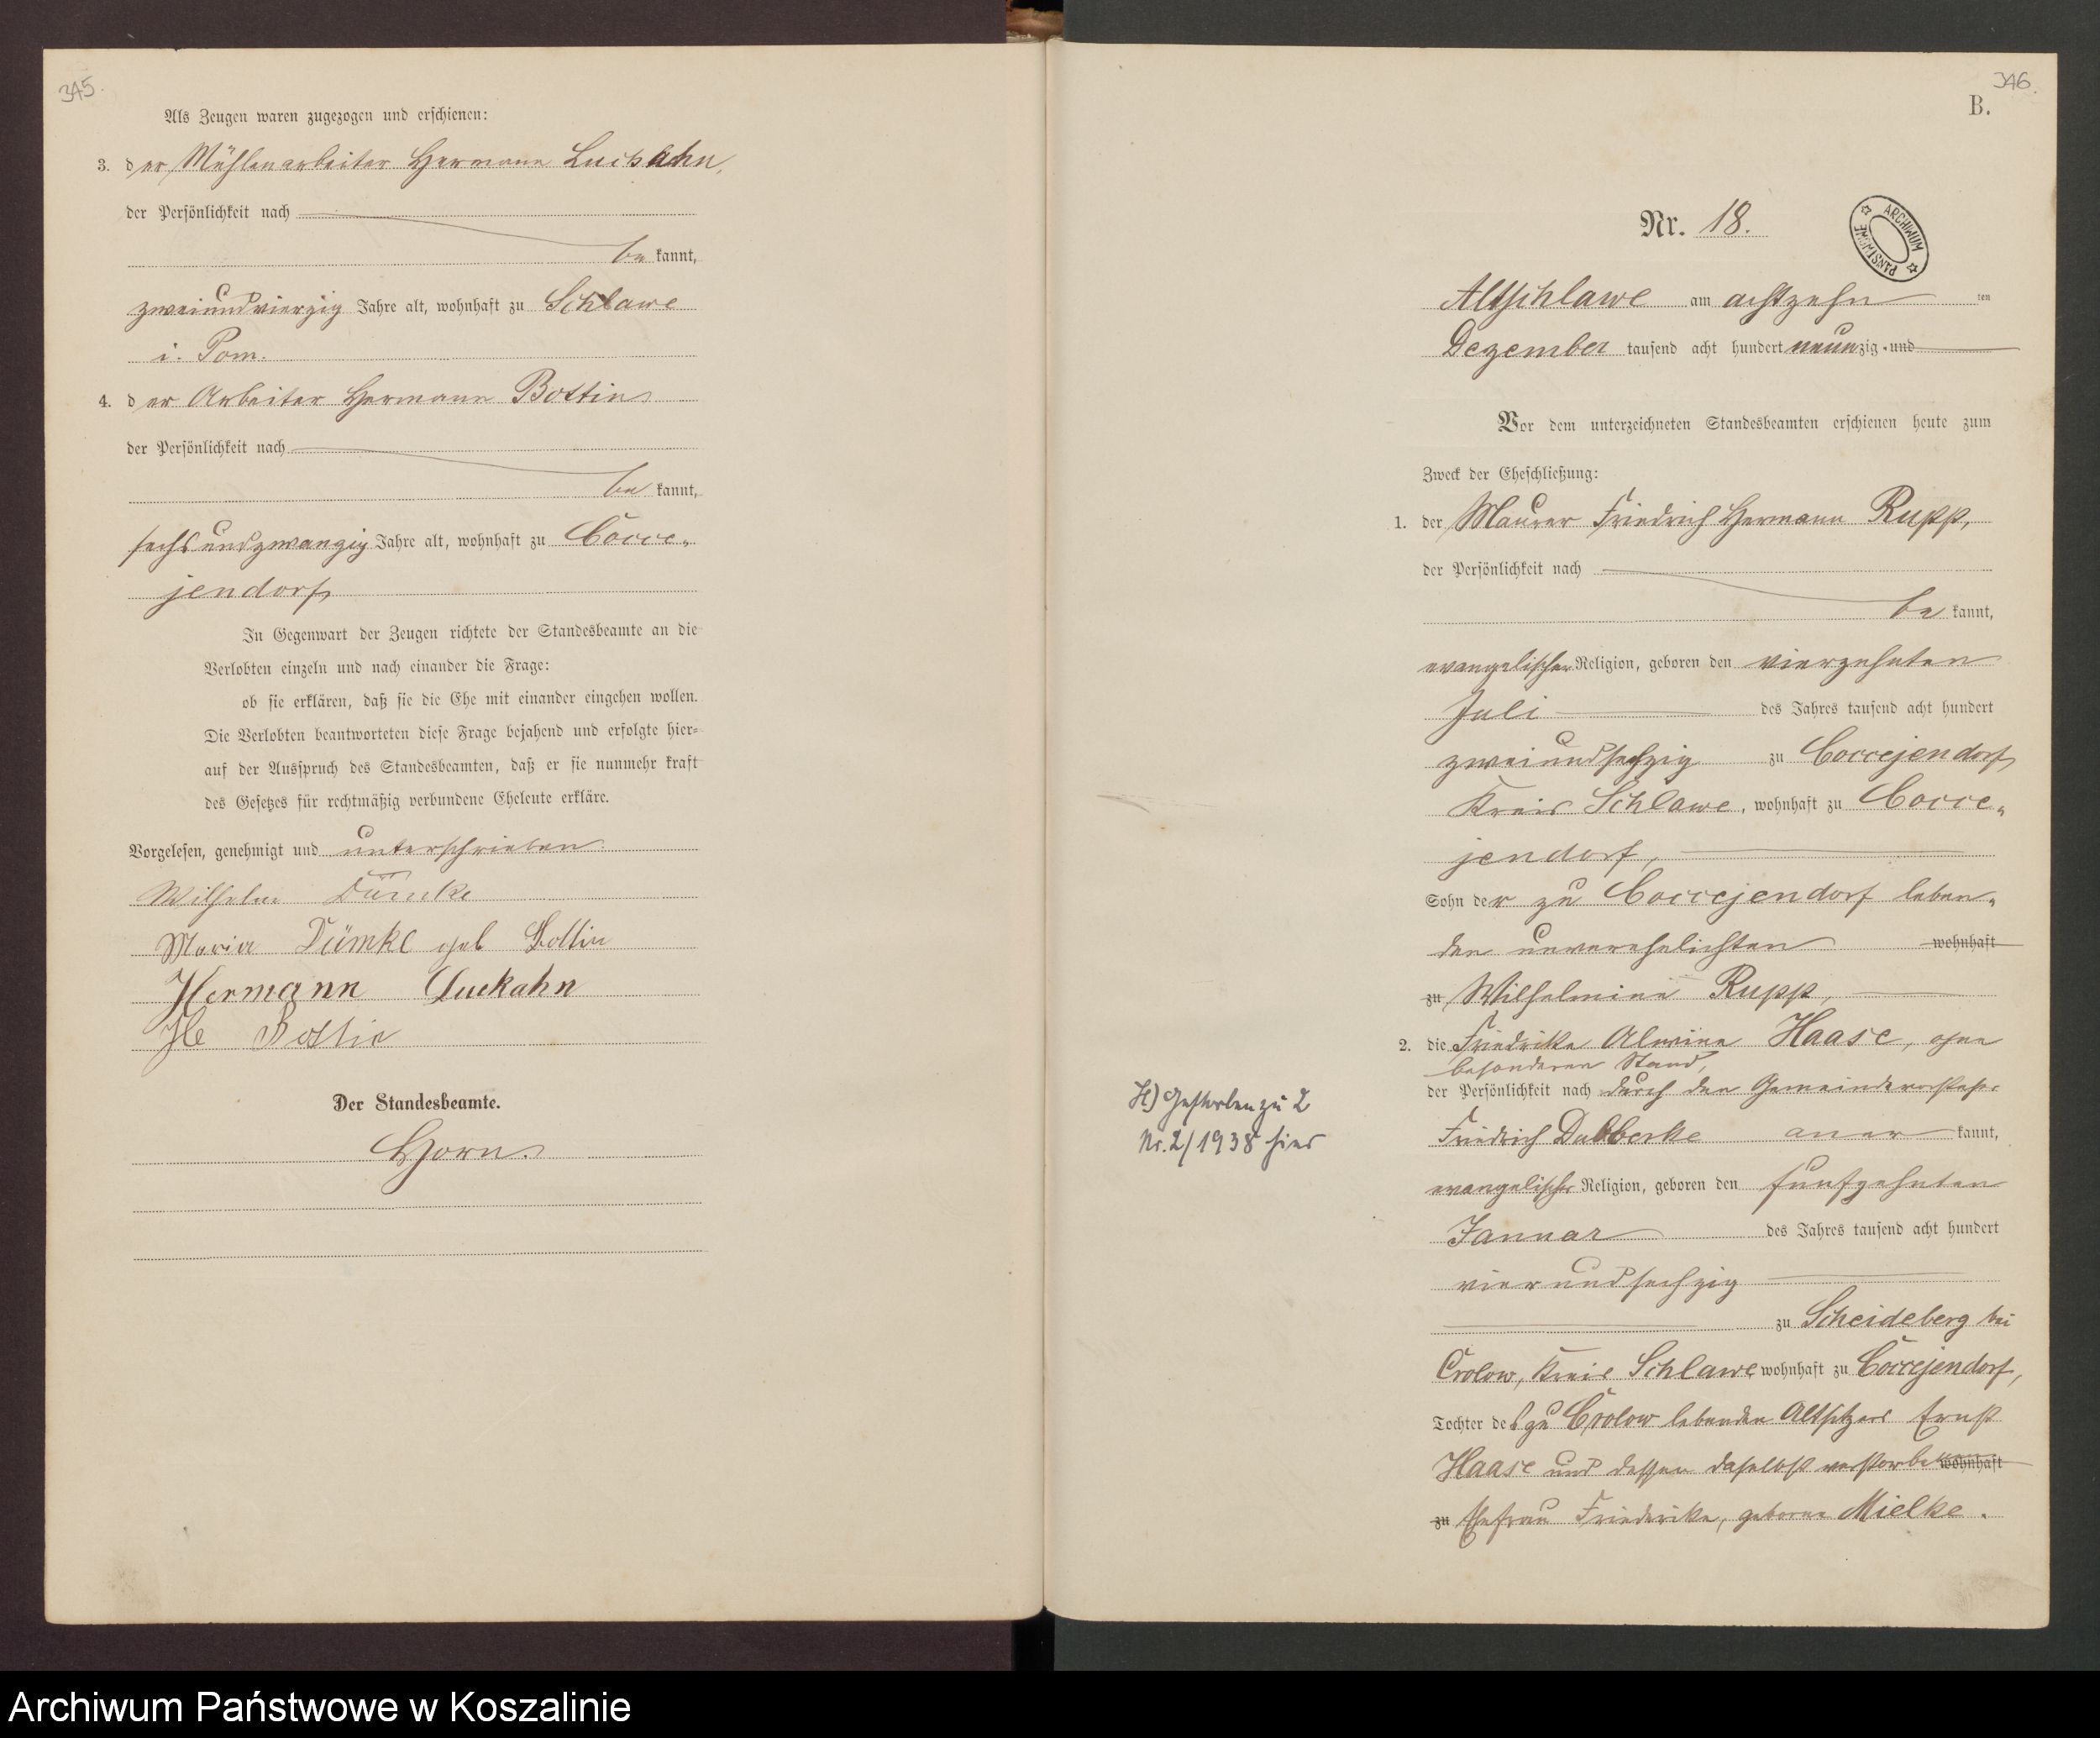 345.
Als Zeugen waren zugezogen und erschienen:
3. der Mühlenarbeiter Hermann Luckahn,
der Persönlichkeit nach
be kannt,
zweiundvierzig Jahre alt, wohnhaft zu Schlawe
i. Pom.
4. der Arbeiter Hermann Bottin
der Persönlichkeit nach
be kannt,
sechsundzwanzig Jahre alt, wohnhaft zu Cocce-
jendorf
In Gegenwart der Zeugen richtete der Standesbeamte an die
Verlobten einzeln und nach einander die Frage:
ob sie erklären, daß sie die Ehe mit einander eingehen wollen.
Die Verlobten beantworteten diese Frage bejahend und erfolgte hier-
auf der Ausspruch des Standesbeamten, daß er sie nunmehr kraft
des Gesetzes für rechtmäßig verbundene Eheleute erkläre.
Vorgelesen, genehmigt und unterschrieben.
Wilhelm Dümke
Maria Dümke geb Bottin
Hermann Luckahn
He Bottin
Der Standesbeamte.
Horn.
346.
B.
Nr. 18.
ARCHIWUM PAŃSTWOWE
Altschlawe am achtzehn ten
Dezember tausend acht hundert neunzig und
Vor dem unterzeichneten Standesbeamten erschienen heute zum
Zweck der Eheschließung:
1. der Maurer Friedrich Hermann Rupp,
der Persönlichkeit nach
be kannt,
evangelischer Religion, geboren den vierzehnten
Juli des Jahres tausend acht hundert
zweiundsechzig zu Coccejendorf,
Kreis Schlawe, wohnhaft zu Cocce-
jendorf,
Sohn der zu Coccejendorf leben-
den unverehelichten wohnhaft
zu Wilhelmine Rupp,
2. die Friedrike Alwine Haase, ohne
besonderen Stand,
der Persönlichkeit nach durch den Gemeindevorsteher
Friedrich Dubberke aner kannt,
evangelischer Religion, geboren den fünfzehnten
Januar des Jahres tausend acht hundert
vierundsechzig
zu Scheideberg bei
Crolow, Kreis Schlawe wohnhaft zu Coccejendorf,
Tochter des zu Crolow lebenden Altsitzers Ernst
Haase und dessen daselbst verstorbenen wohnhaft
zu Ehefrau Friederike, geborne Mielke.
H) Gestorben zu 2
Nr. 2/1938 hier
Archiwum Państwowe w Koszalinie